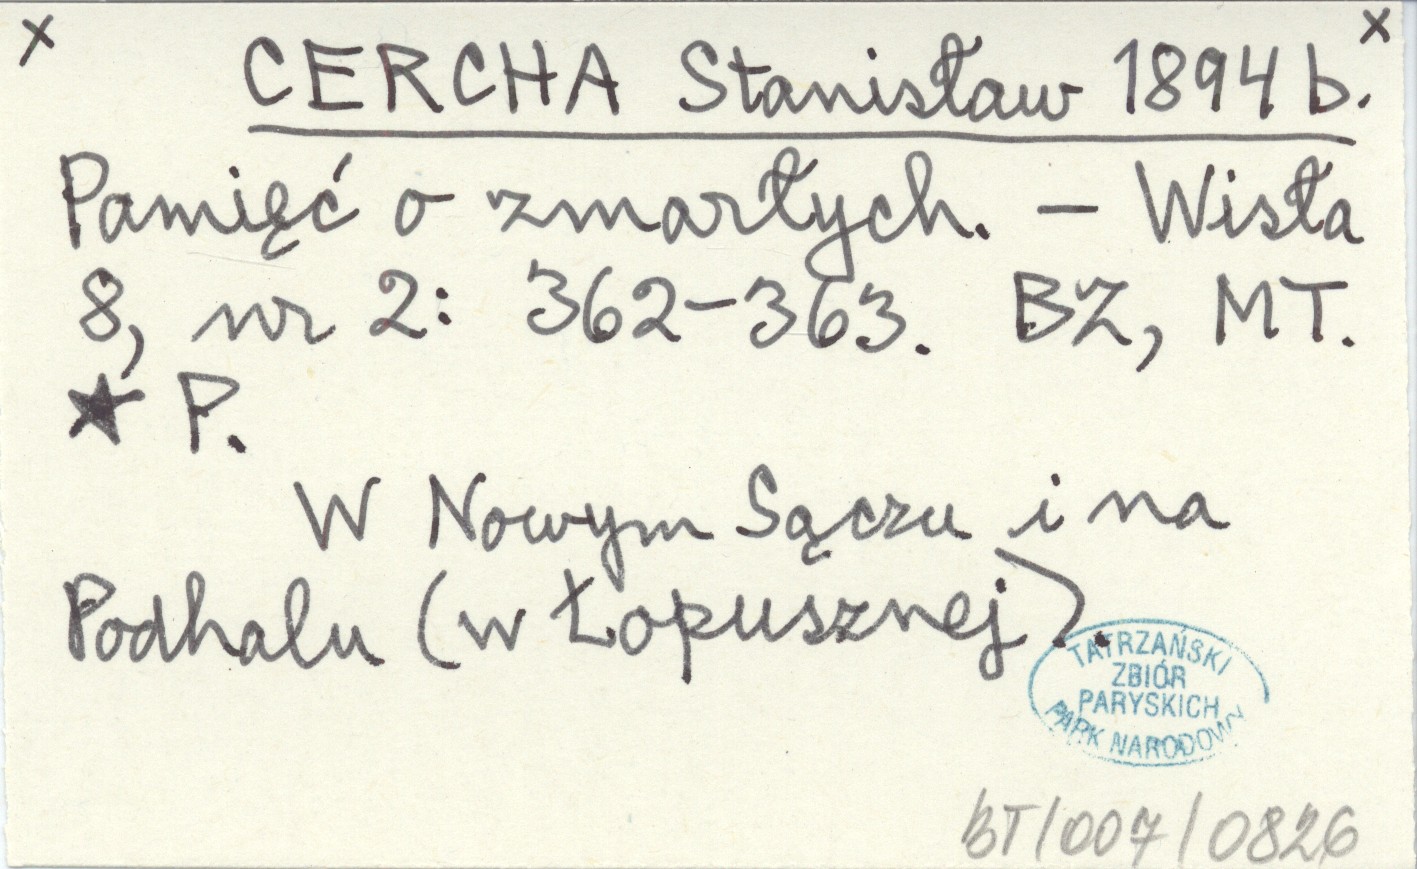 x x
CERCHA Stanisław 1894 b.
Pamięć o zmarłych. – Wisła
8, nr 2: 362–363. BZ, MT.
★ P.
W Nowym Sączu i na
Podhalu (w Łopusznej).
TATRZAŃSKI
ZBIÓR
PARYSKICH
PARK NARODOWY
BT/007/0826